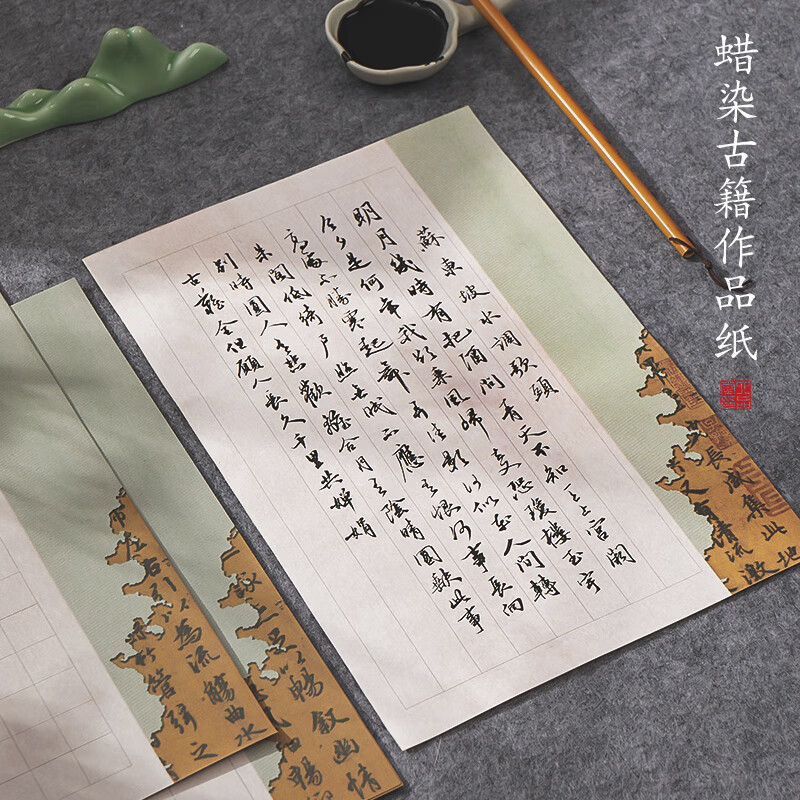 蜡染古籍作品纸
蘇東坡水調歌頭
明月幾時有把酒問青天不知天上宮闕
今夕是何年我欲乘風歸去又恐瓊樓玉宇
高處不勝寒起舞弄清影何似在人間轉
朱閣低綺戶照無眠不應有恨何事長向
別時圓人有悲歡離合月有陰晴圓缺此事
古難全但願人長久千里共嬋娟
長咸集此地
又有清流激
一詠亦足以暢敘幽情
帶左右引以為流觴曲水
竹管弦之